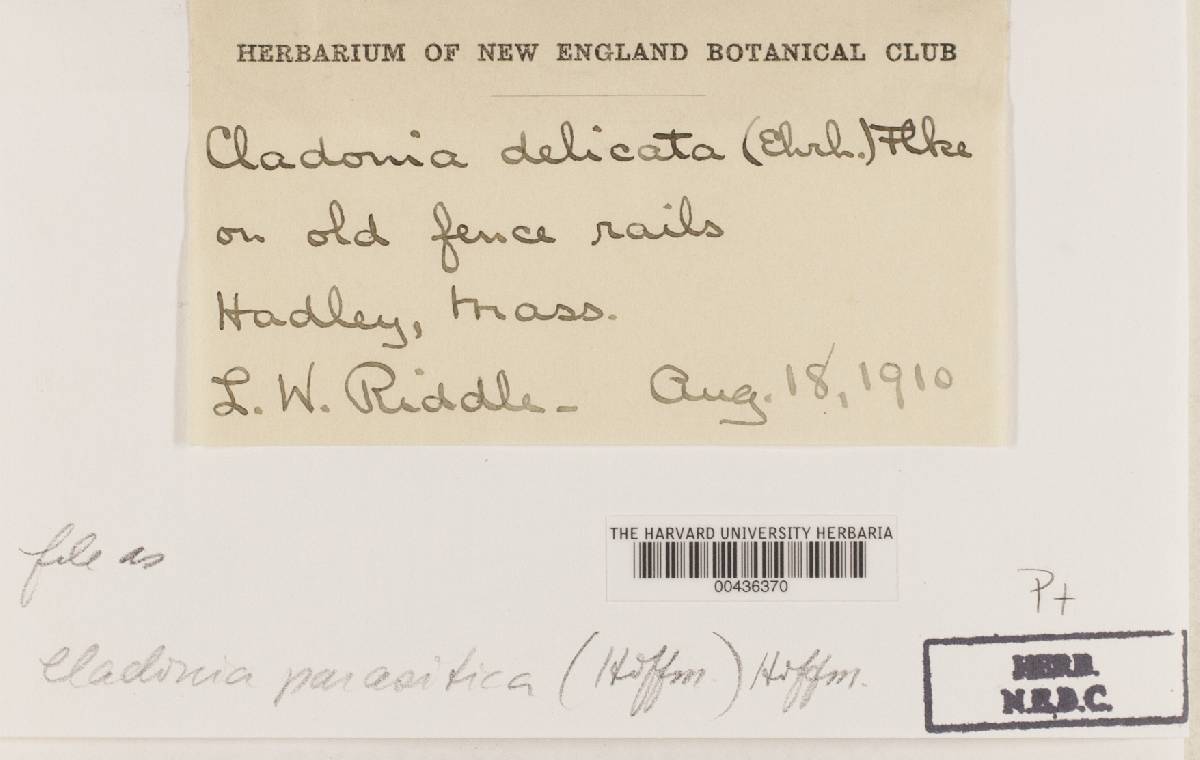 HERBARIUM OF NEW ENGLAND BOTANICAL CLUB
Cladonia delicata (Ehrh.) Flke
on old fence rails
Hadley, Mass.
L. W. Riddle – Aug. 18, 1910
file as
THE HARVARD UNIVERSITY HERBARIA
00436370
P+
Cladonia parasitica (Hoffm.) Hoffm.
HERB.
N.E.B.C.